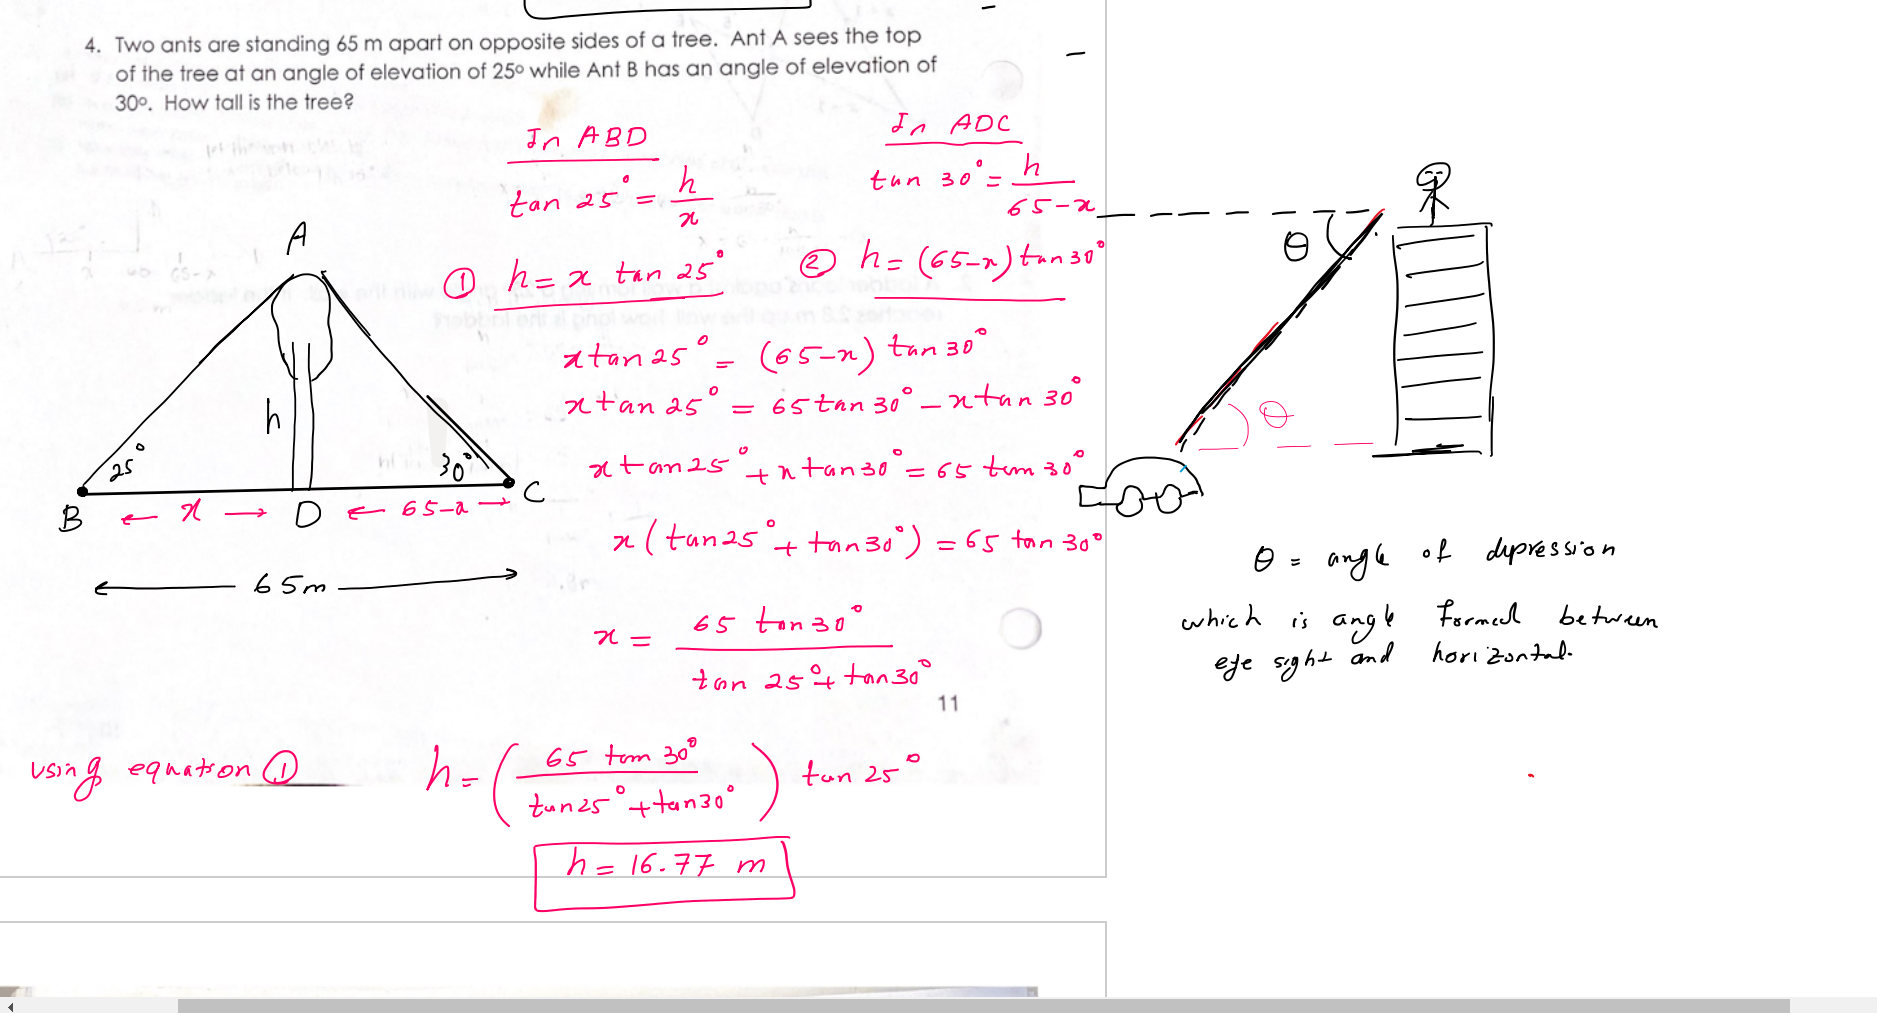 4. Two ants are standing 65 m apart on opposite sides of a tree. Ant A sees the top
of the tree at an angle of elevation of 25° while Ant B has an angle of elevation of
30°. How tall is the tree?
In ABD
tan 25° = h/x
① h = x tan 25°
In ADC
tan 30° = h/65-x
② h = (65-x) tan 30°
x tan 25° = (65-x) tan 30°
x tan 25° = 65 tan 30° - x tan 30°
x tan 25° + x tan 30° = 65 tan 30°
x (tan 25° + tan 30°) = 65 tan 30°
x = 65 tan 30° / tan 25° + tan 30°
11
A
h
25°
30°
B ← x → D ← 65-x → C
65m
using equation ① h = (65 tan 30° / tan 25° + tan 30°) tan 25°
h = 16.77 m
θ
θ
θ = angle of depression
which is angle formed between
eye sight and horizontal.